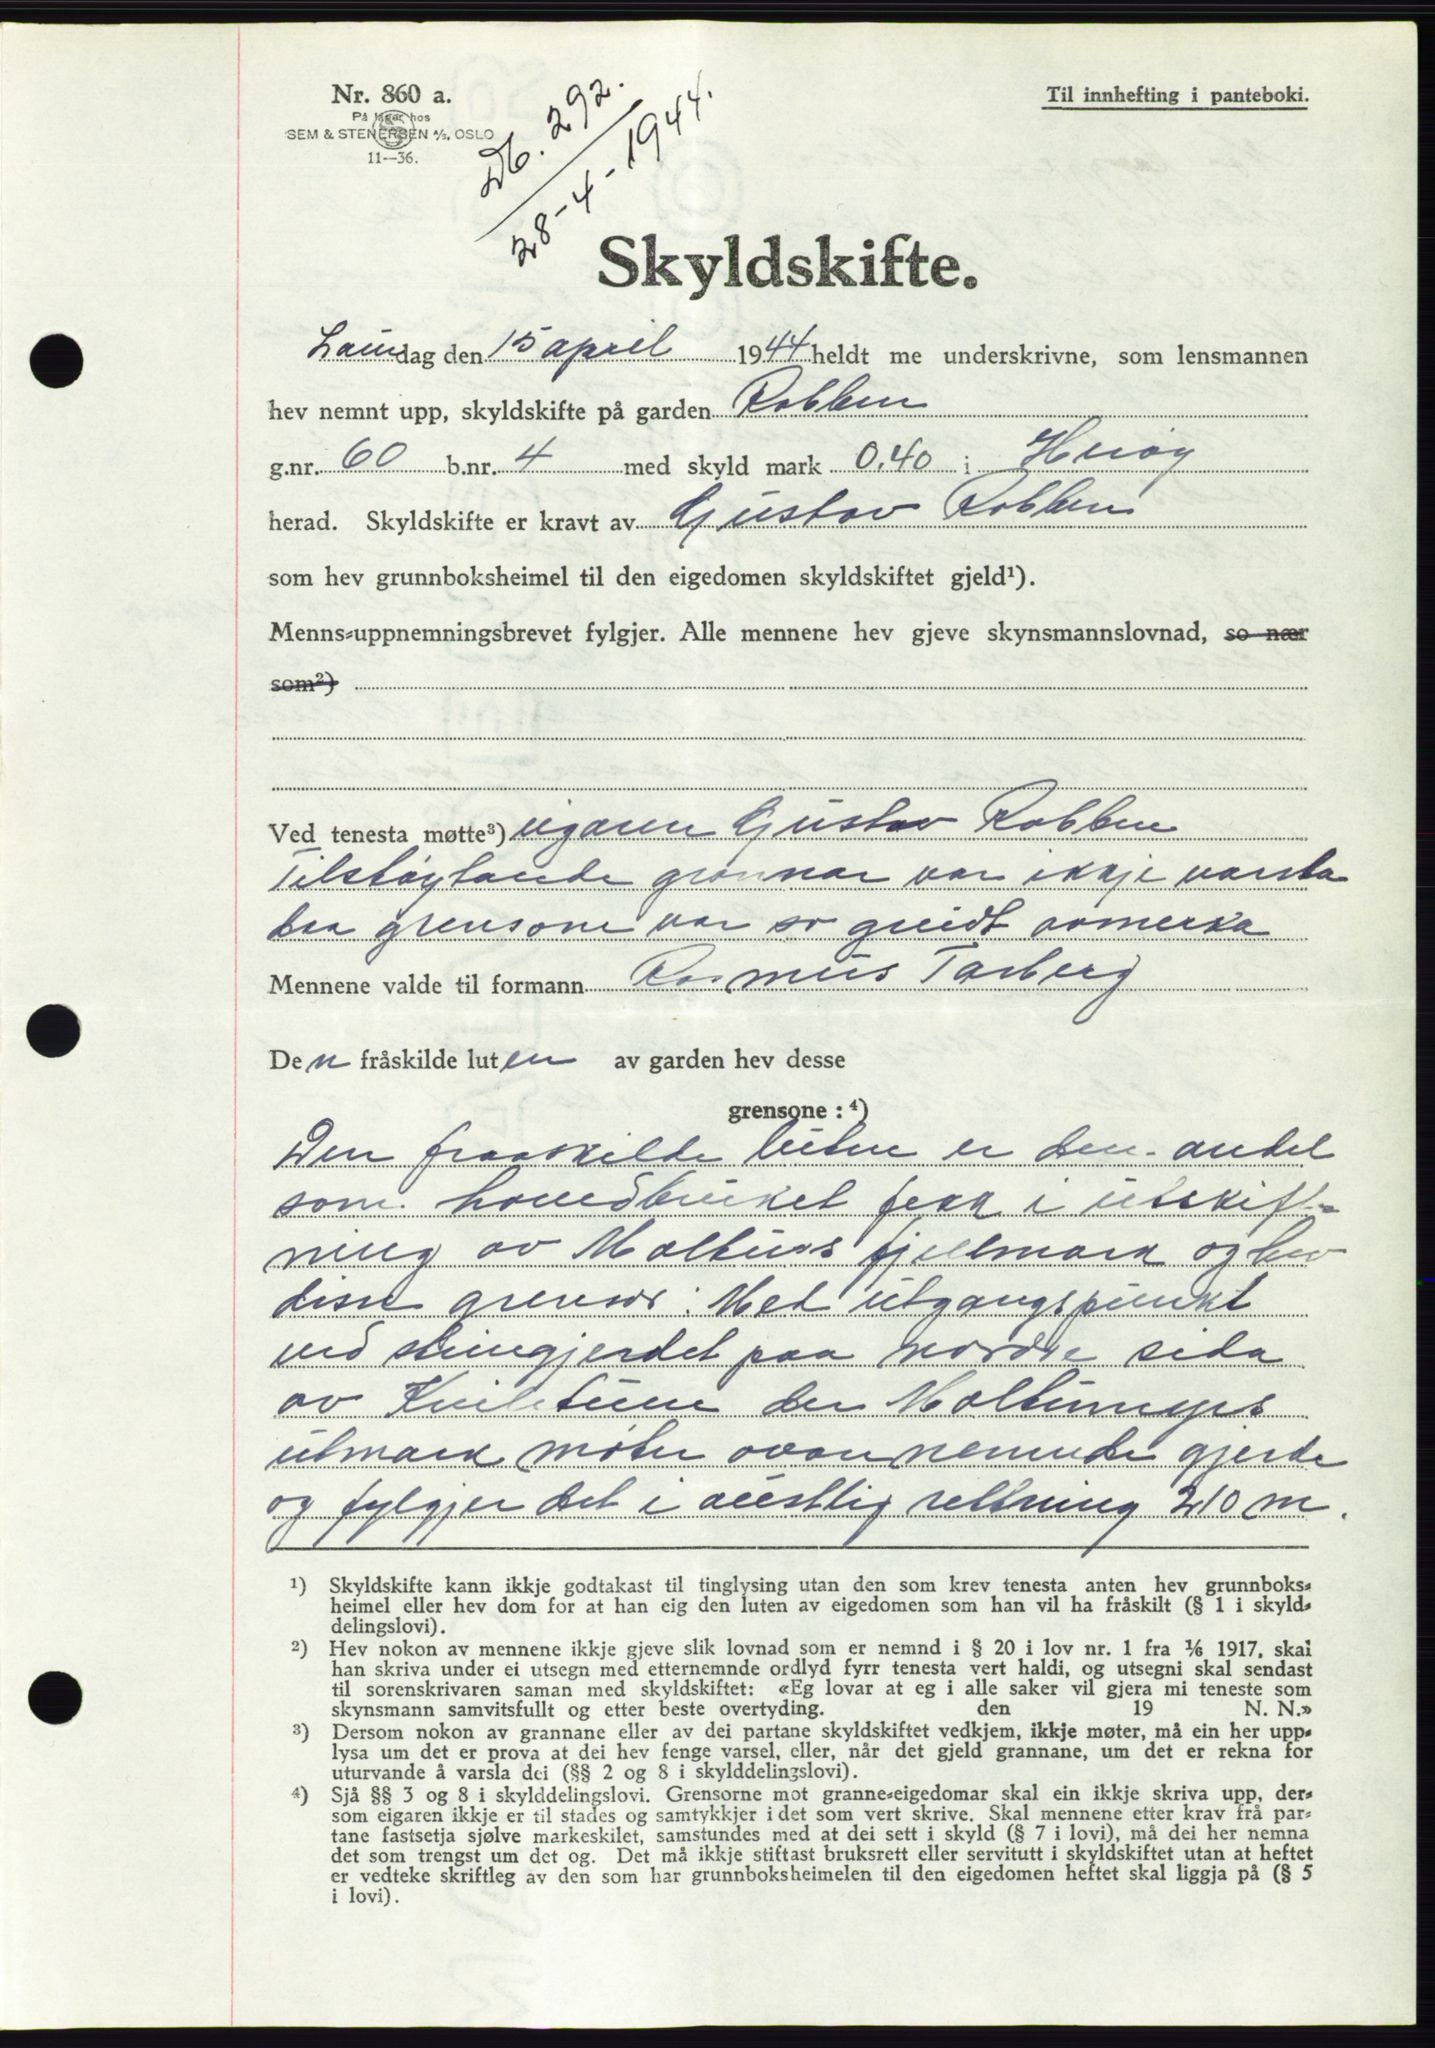 Nr. 860 a.
På lager hos
SEM & STENERSEN A/S, OSLO
11--36.
Db. 292.
28-4-1944.
Til innhefting i panteboki.
Skyldskifte.
Laurdag den 15 april 1944 heldt me underskrivne, som lensmannen
hev nemnt upp, skyldskifte på garden Robben
g.nr. 60 b.nr. 4 med skyld mark 0.40 i Herøy
herad. Skyldskifte er kravt av Gustav Robben
som hev grunnboksheimel til den eigedomen skyldskiftet gjeld¹).
Menns-uppnemningsbrevet fylgjer. Alle mennene hev gjeve skynsmannslovnad, so nær
som²)
Ved tenesta møtte³) eigaren Gustav Robben
Tilstøytande grannar var ikkje varsla
daa grensone var so greidt avmerka
Mennene valde til formann Rasmus Tarberg
Den fråskilde luten av garden hev desse
grensone : ⁴)
Den fraaskilde luten er den andel
som hovedbruket fekk i utskift-
ning av Moltues fjellmark og hev
disse grensor : Med utgangspunkt
ved steingjerdet paa nordre sida
av der Moltumyrs
utmark møter ovannemnde gjerde
og fylgjer det i austlig rettning 210 m.
¹) Skyldskifte kann ikkje godtakast til tinglysing utan den som krev tenesta anten hev grunnboks-
heimel eller hev dom for at han eig den luten av eigedomen som han vil ha fråskilt (§ 1 i skyld-
delingslovi).
²) Hev nokon av mennene ikkje gjeve slik lovnad som er nemnd i § 20 i lov nr. 1 fra 1/6 1917, skal
han skriva under ei utsegn med etternemnde ordlyd fyrr tenesta vert haldi, og utsegni skal sendast
til sorenskrivaren saman med skyldskiftet: «Eg lovar at eg i alle saker vil gjera mi teneste som
skynsmann samvitsfullt og etter beste overtyding. den 19 N. N.»
³) Dersom nokon av grannane eller av dei partane skyldskiftet vedkjem, ikkje møter, må ein her upp-
lysa um det er prova at dei hev fenge varsel, eller, når det gjeld grannane, um det er rekna for
uturvande å varsla dei (§§ 2 og 8 i skylddelingslovi).
⁴) Sjå §§ 3 og 8 i skylddelingslovi. Grensorne mot granne-eigedomar skal ein ikkje skriva upp, der-
som eigaren ikkje er til stades og samtykkjer i det som vert skrive. Skal mennene etter krav frå par-
tane fastsetja sjølve markeskilet, samstundes med at dei sett i skyld (§ 7 i lovi), må dei her nemna
det som trengst um det og. Det må ikkje stiftast bruksrett eller servitutt i skyldskiftet utan at heftet
er vedteke skriftleg av den som har grunnboksheimelen til den eigedomen heftet skal liggja på (§ 5
i lovi).